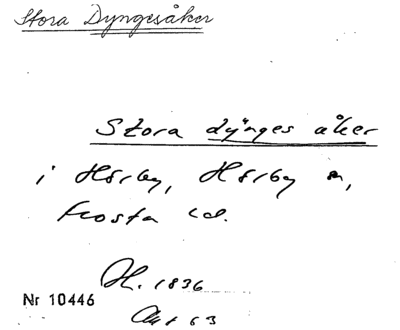 Stora Dyngesåker
Stora dynges åker
i Hörby, Hörby s,
Frosta hd.
H. 1836
Nr 10446
Akt 63